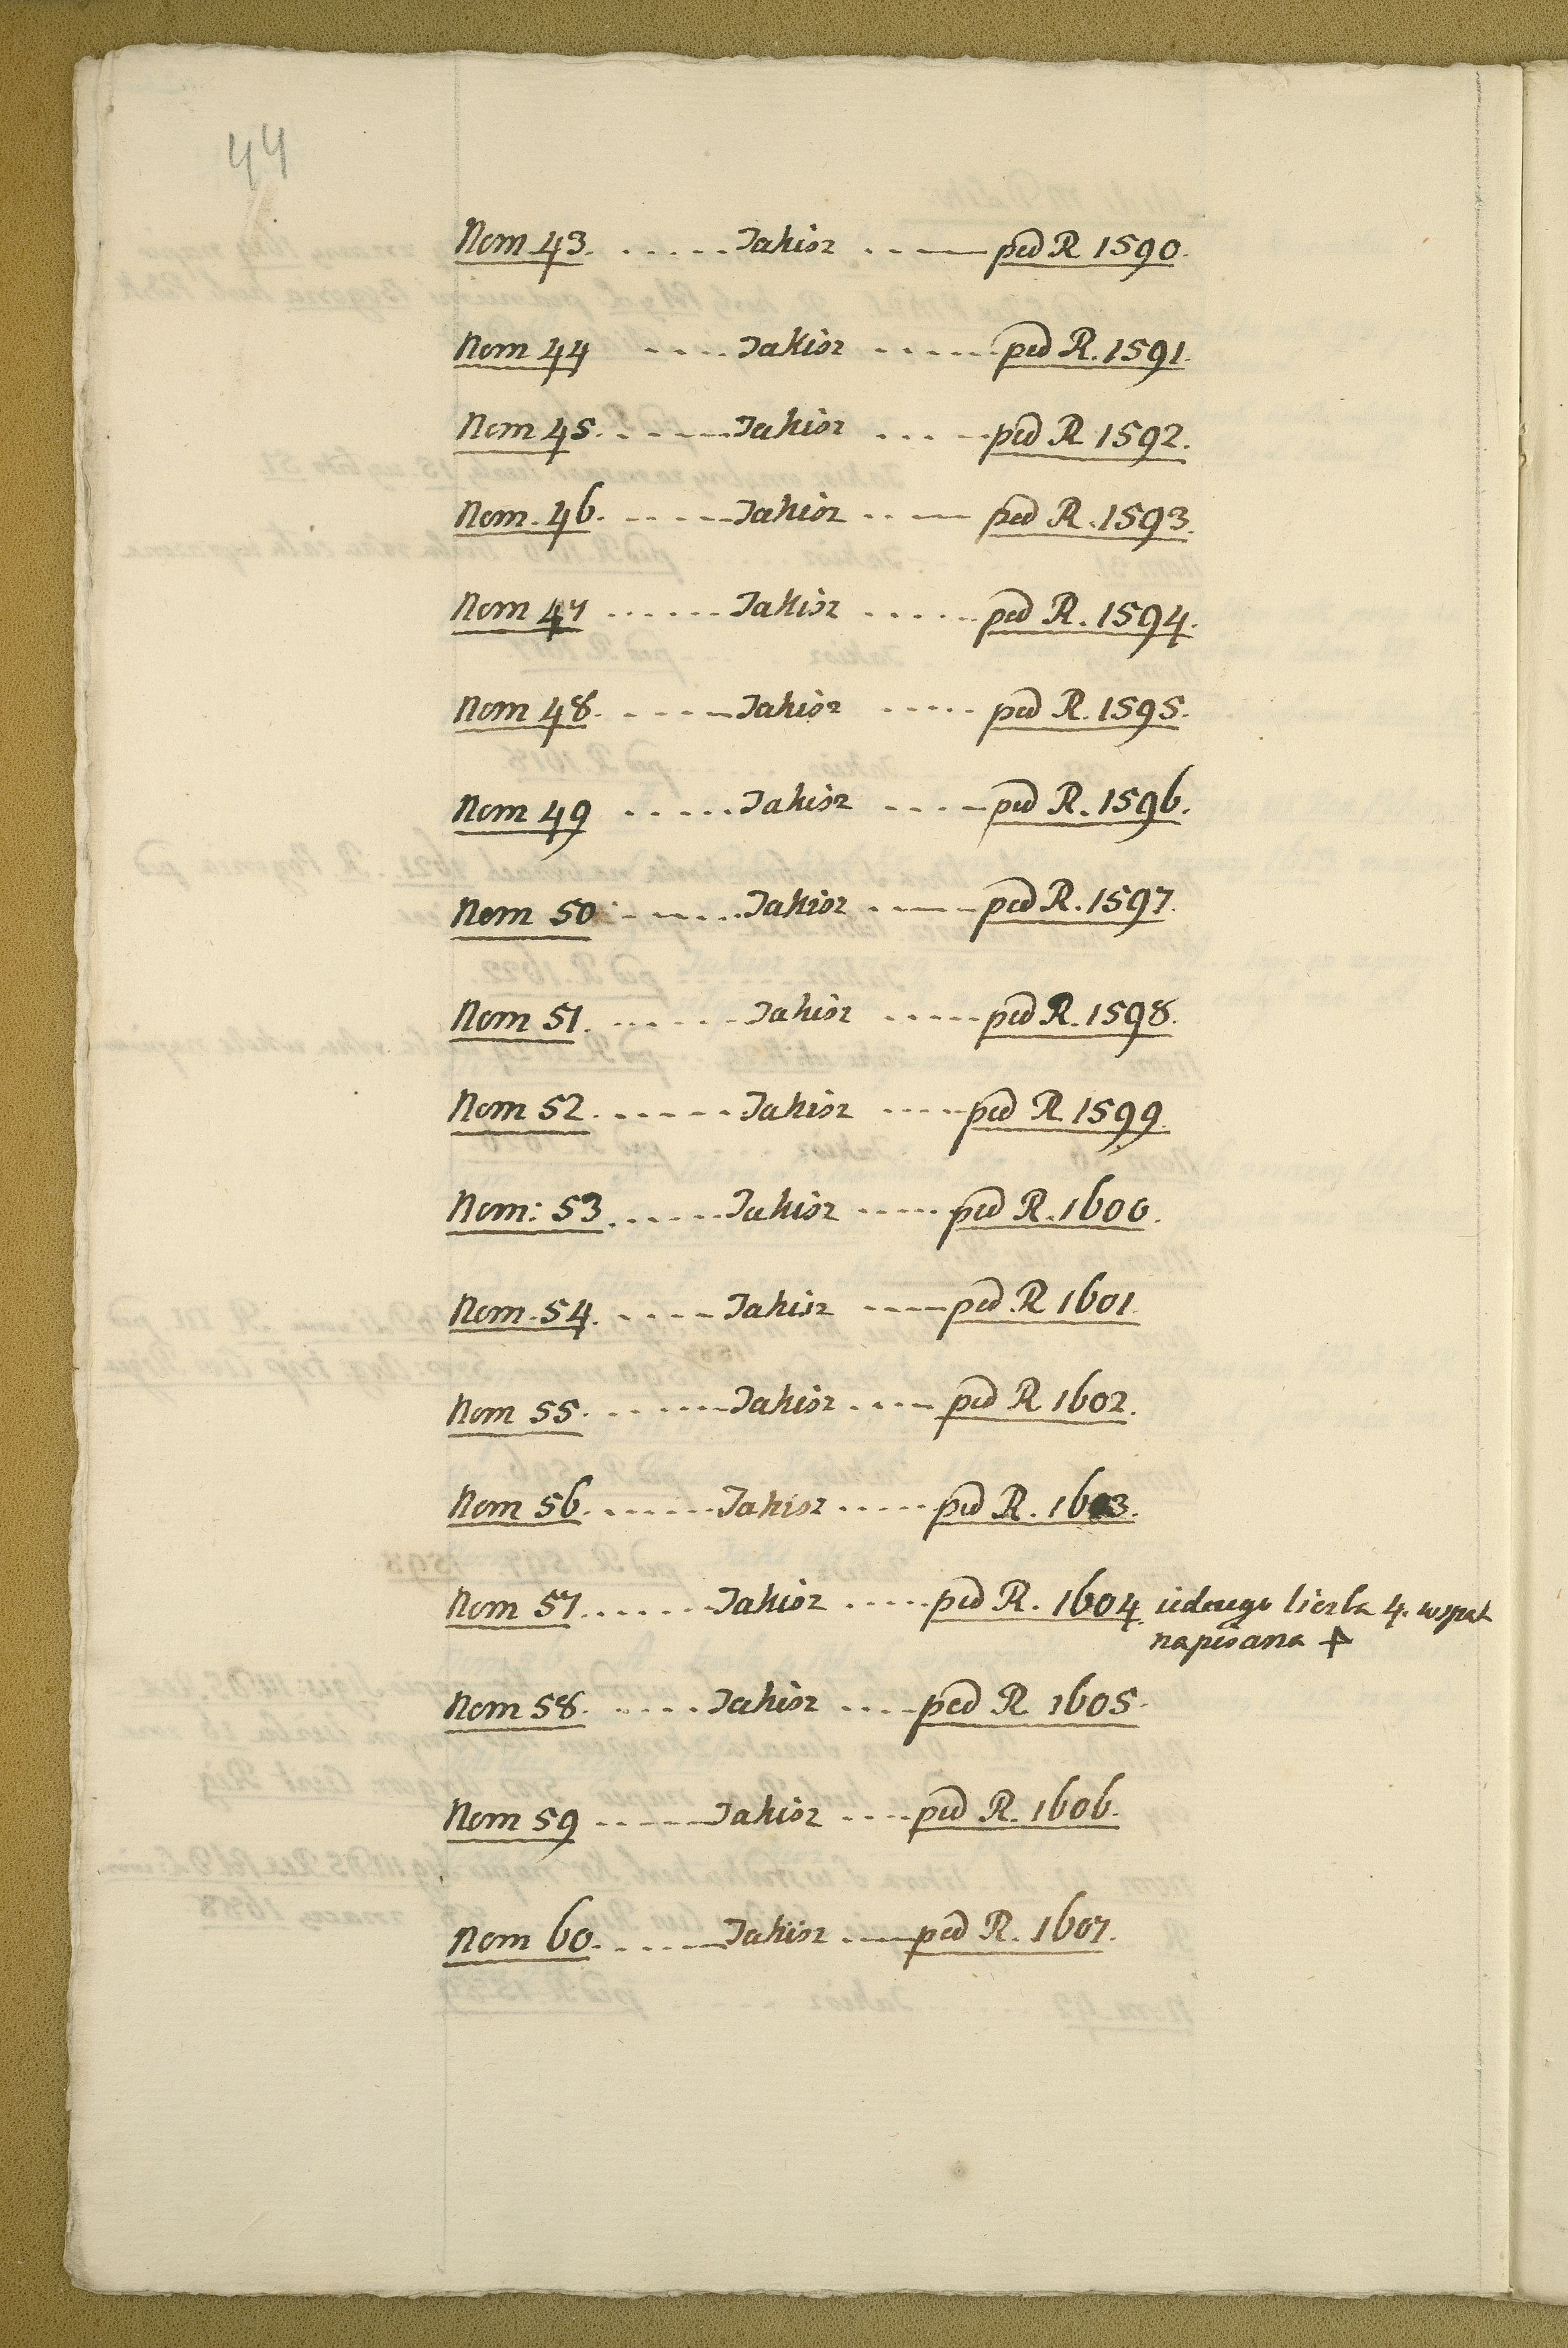 44
Nom 43. ..... Jakisz ..... pod R 1590.
Nom 44 .... Jakisz ..... pod R. 1591.
Nom 45. .... Jakisz .... pod R 1592.
Nom. 46. .... Jakisz .... pod R. 1593.
Nom 47 ...... Jakisz ...... pod R. 1594.
Nom 48. .... Jakisz ..... pod R. 1595.
Nom 49 ..... Jakisz .... pod R. 1596.
Nom 50 ..... Jakisz .... pod R. 1597.
Nom 51. ..... Jakisz ..... pod R. 1598.
Nom 52. ..... Jakisz .... pod R. 1599.
Nom: 53. ..... Jakisz ..... pod R. 1600.
Nom. 54. .... Jakisz .... pod R 1601.
Nom 55. ..... Jakisz .... pod R 1602.
Nom 56. ..... Jakisz ..... pod R. 1603.
Nom 57. ..... Jakisz ..... pod R. 1604 liczba 4. wspak
napisana
Nom 58. .... Jakisz .... pod R 1605.
Nom 59 ..... Jakisz .... pod R. 1606.
Nom 60. .... Jakisz .... pod R. 1607.